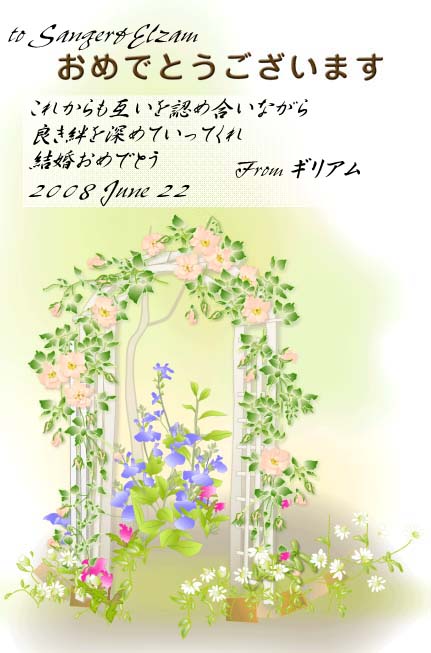 to Sanger&Elzam
おめでとうございます
これからも互いを認め合いながら
良き絆を深めていってくれ
結婚おめでとう
From ギリアム
2008 June 22